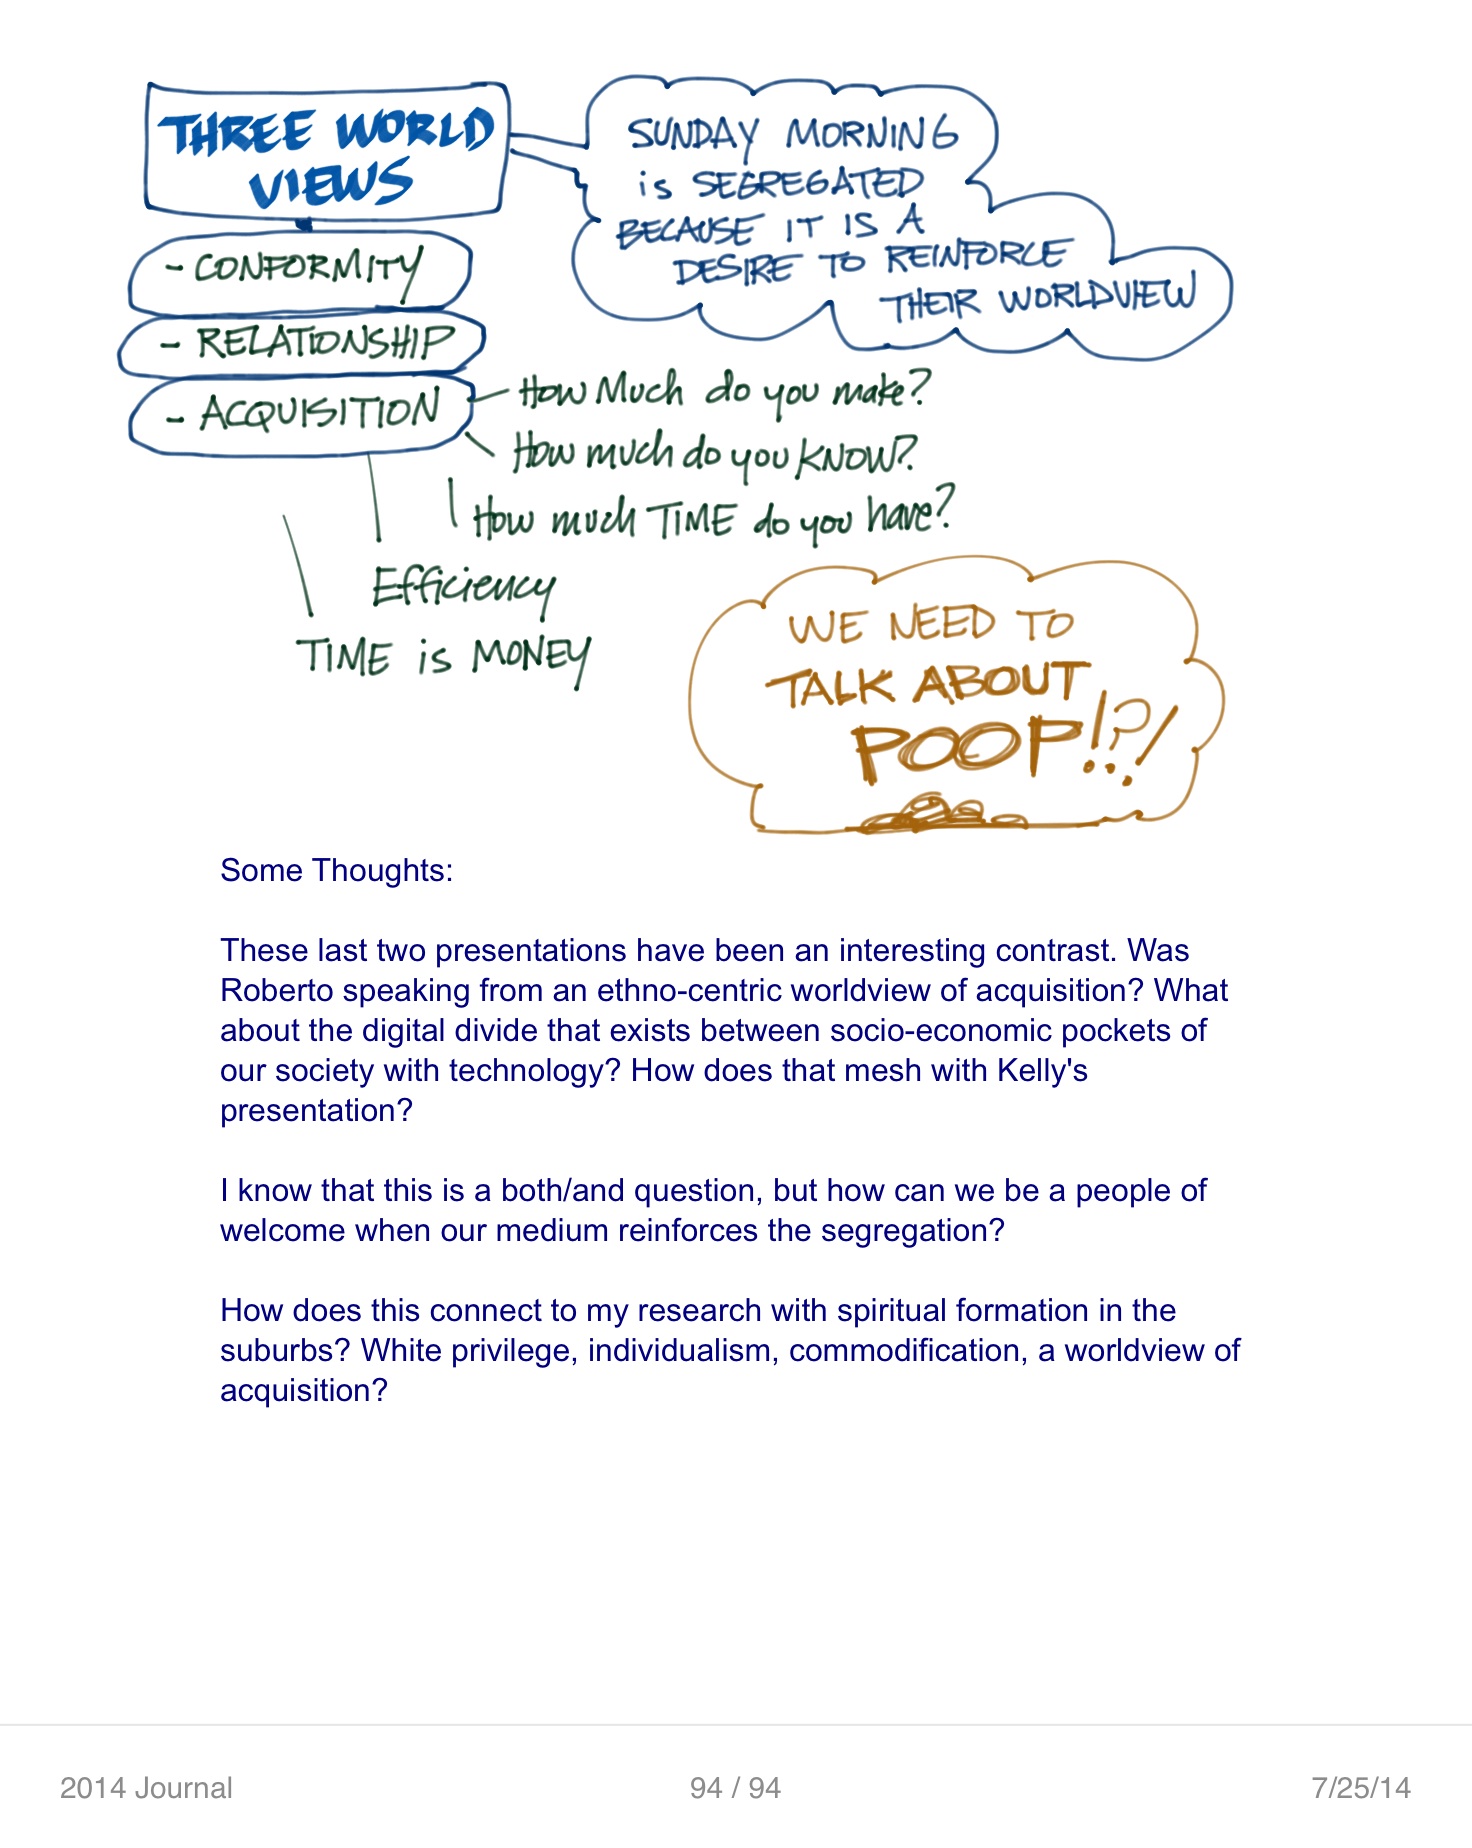 THREE WORLD
VIEWS
- CONFORMITY
- RELATIONSHIP
- ACQUISITION
SUNDAY MORNING
is SEGREGATED
BECAUSE IT IS A
DESIRE TO REINFORCE
THEIR WORLDVIEW
How Much do you make?
How much do you KNOW?
How much TIME do you have?
Efficiency
TIME is MONEY
WE NEED TO
TALK ABOUT
POOP!?!
Some Thoughts:
These last two presentations have been an interesting contrast. Was
Roberto speaking from an ethno-centric worldview of acquisition? What
about the digital divide that exists between socio-economic pockets of
our society with technology? How does that mesh with Kelly's
presentation?
I know that this is a both/and question, but how can we be a people of
welcome when our medium reinforces the segregation?
How does this connect to my research with spiritual formation in the
suburbs? White privilege, individualism, commodification, a worldview of
acquisition?
2014 Journal
94 / 94
7/25/14